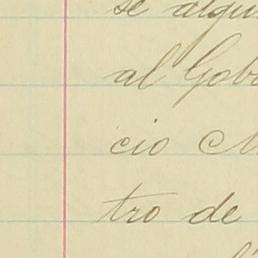 se algu
al Gob
cio M
tro de